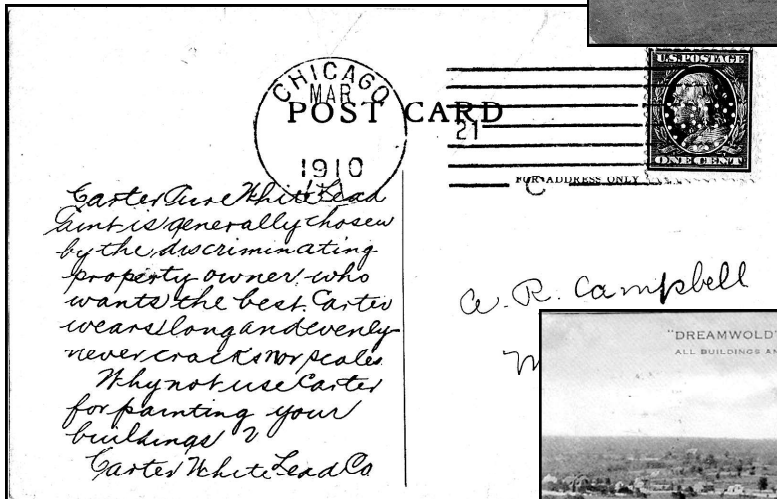 U.S. POSTAGE
ONE CENT
CHICAGO
MAR
21
1910
POST CARD
FOR ADDRESS ONLY
Carter Pure White Lead
Paint is generally chosen
by the discriminating
property owner who
wants the best. Carter
wears long and evenly
never cracks nor scales.
Why not use Carter
for painting your
buildings?
Carter White Lead Co
A. R. Campbell
"DREAMWOLD"
ALL BUILDINGS